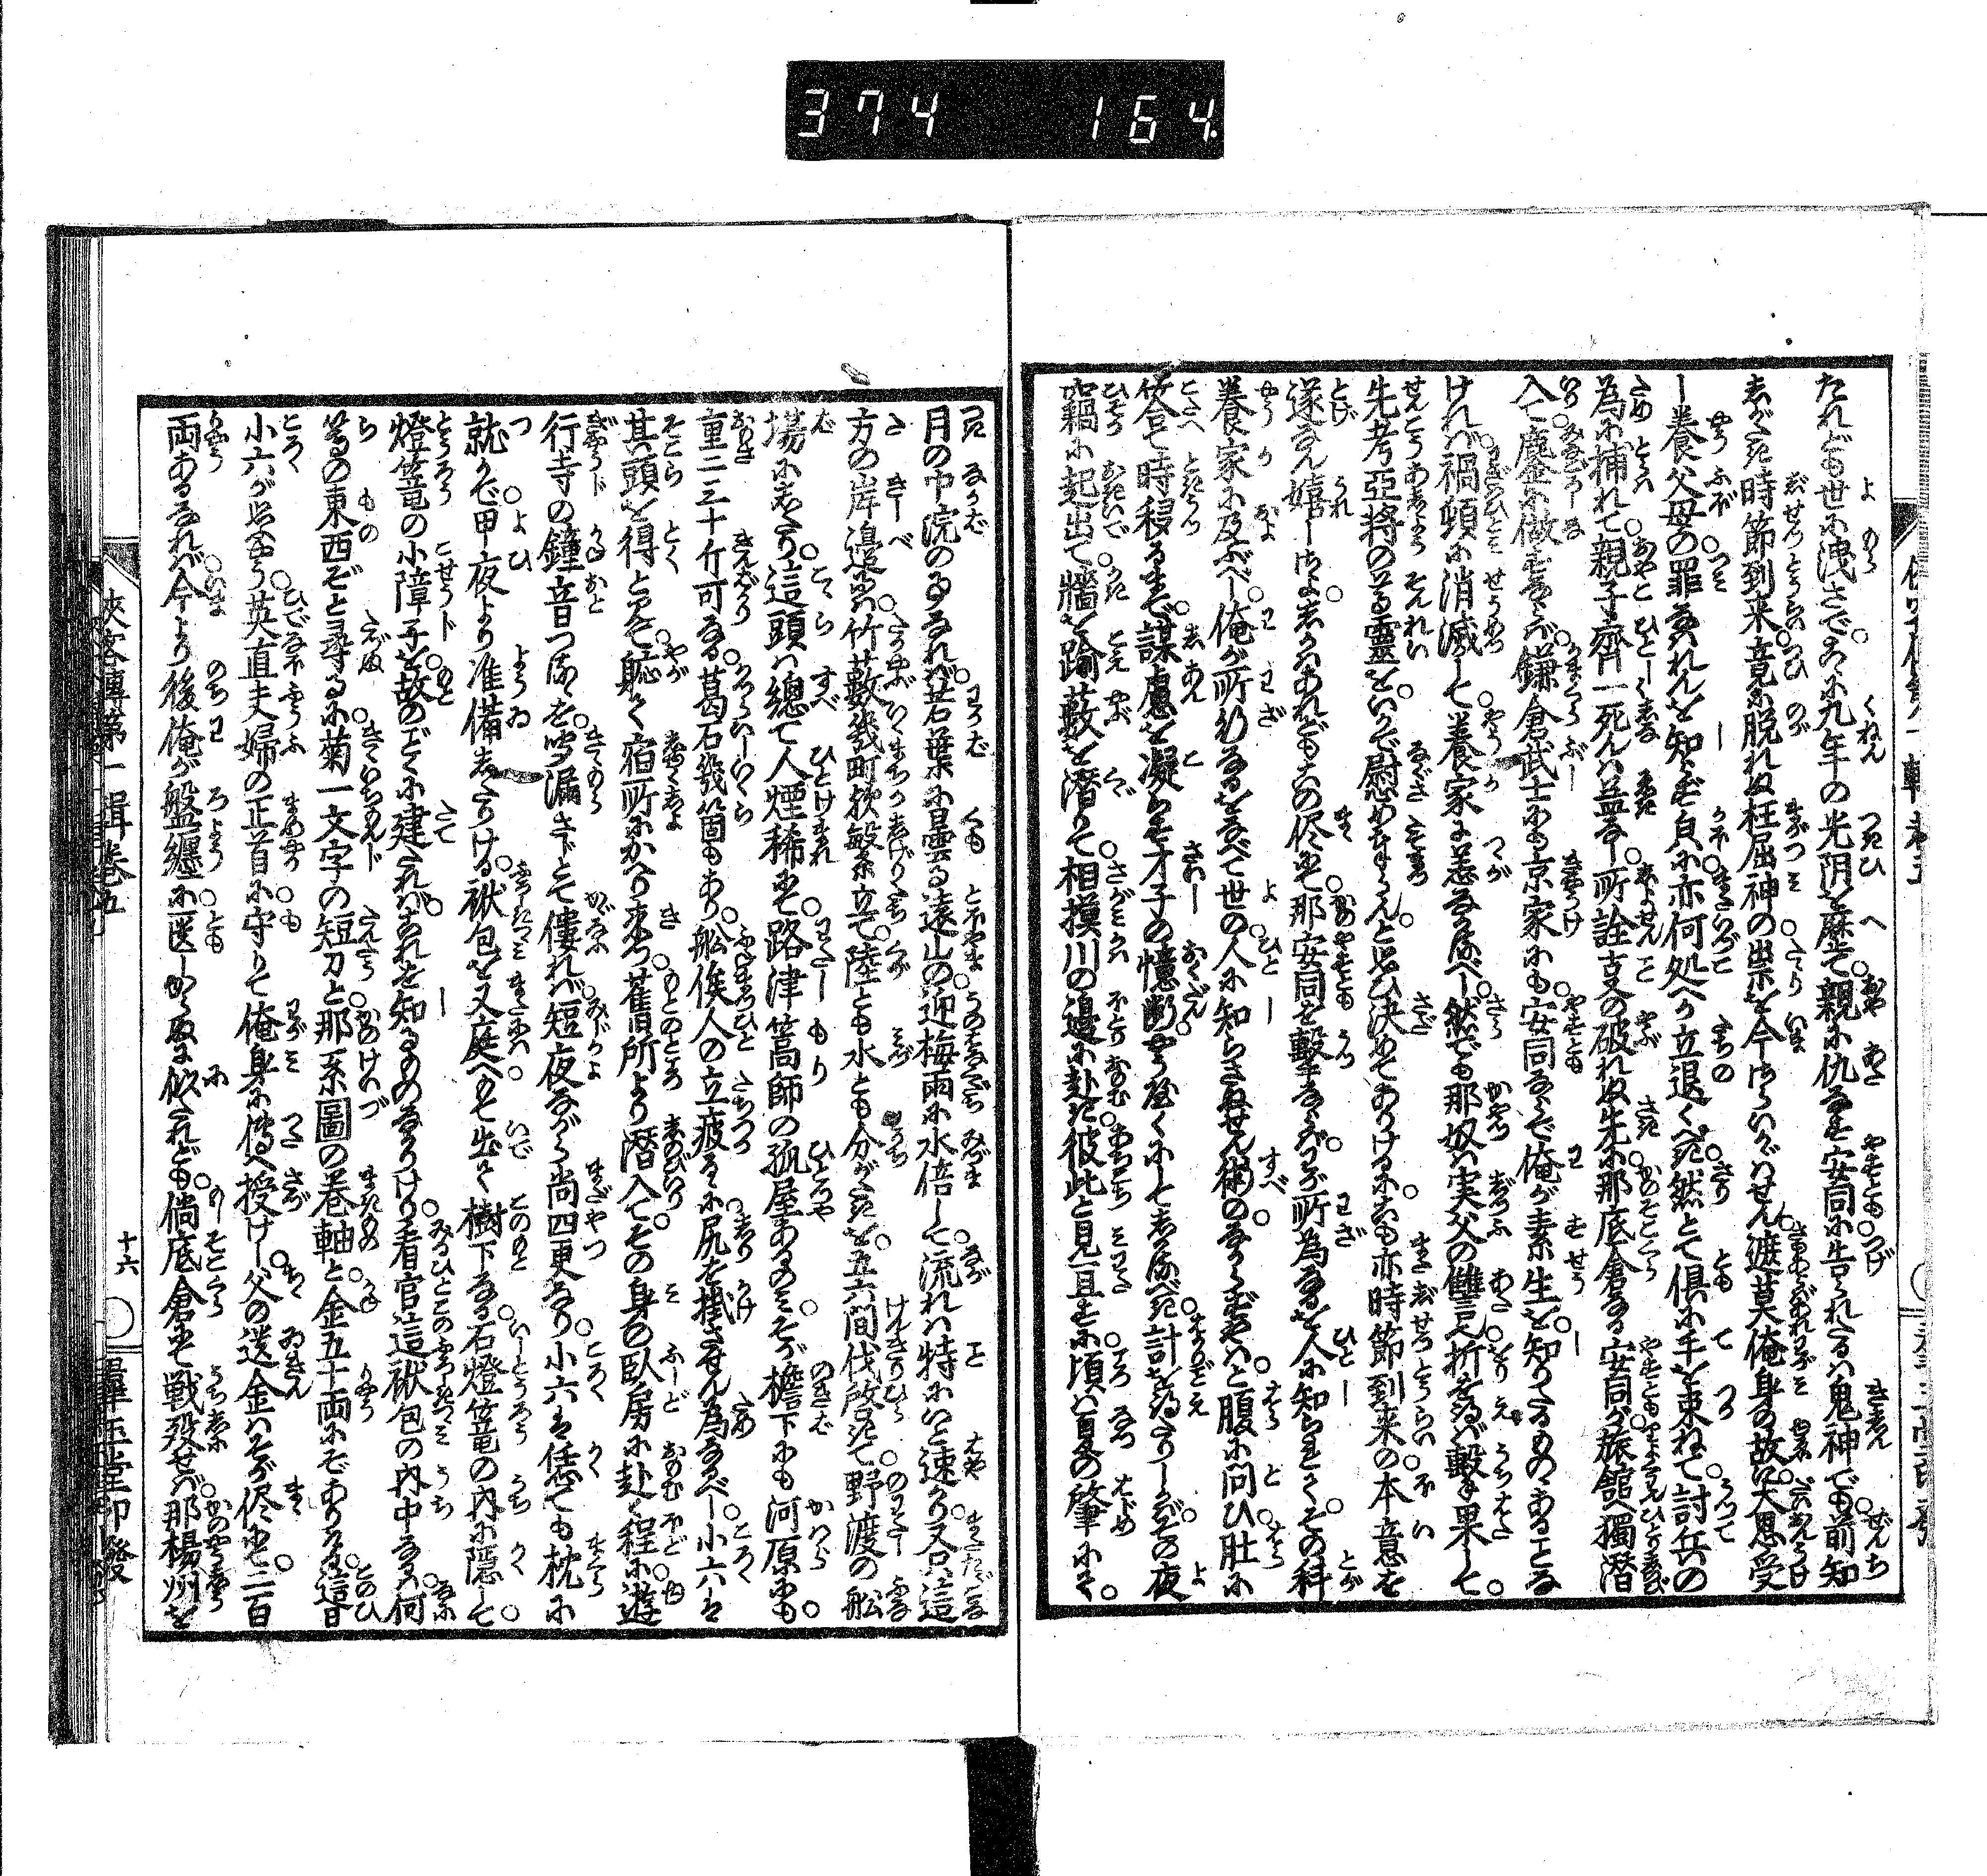 374 164
たれども世に洩さで。こゝに九年の光陰を歴ぞ。親に仇なる安同に告られたるは鬼神でも。前知
しがたき時節到来。竟に脱れぬ枉屈神の祟を。今はらいがはせん。遮莫俺身の故に。大恩受
し養父母の。罪なはれんを知らず㒵に。亦何処へか立退くべき。然とて倶に手を束ねて。討兵の
為に捕れて。親子齊一死んは益なし。所詮支の破れぬ先に。那底倉なる安同が。旅館へ獨潜
入て。塵に做さば。鎌倉武士にも京家にも。安同ならで俺が素生を。知りたるものあることな
けれバ。禍頓に消滅して。養家に恙なかるべし。然でも那奴は実父の讐言。折を得ば撃も果して。
先考亞將のなき霊を。いかで慰めまつらん。と思ひ決めてありけるに。こも亦時節到来の。本意を
遂なん嬉しさよ。しかはあれども。その侭にて。那安同を撃なば。わが所為なるを人に知られて。その科
養家に及ぶべし。俺が所行なるをなべて世の。人に知らさぬせん術の。なからずやはと腹に問ひ。肚に
答て時移るまで。謀慮を凝らす才子の憶断。やうやくにしてしかるべき。計を得たりしかバ。その夜
竊に起出て。牆を踰藪を潜りて。相摸川の邊に赴き。彼此と見亘すに。頃は夏の肇にて。
月の中浣の事なれば。若葉に曇る遠山の。迎梅雨に水倍して。流れは特にいと速かり。又只這
方の岸邉には。竹藪幾町歟繁立て。陸とも水とも分がたきを。五六間伐啓きて。野渡の舩
場にしたり。這頭は總て人煙稀にて。路津篙師の孤屋あるのミ。そが檐下にも河原にも。
重二三十斤可なる。葛石幾箇もあり。舩俟人の立疲るゝに。尻を掛させん為なるべし。小六は
其頭を得と見て。軈て宿所にかへり来つ。舊所より潜入て。その身の臥房に赴く程に。遊
行寺の鐘音つくを。聞漏さじとて僂れば。短夜ながら尚四更なり。小六は恁ても枕に
就かで。甲夜より准備したりける。袱包を又庭へもて出て。樹下なる。石燈篭の内に隠して。
燈篭の小障子を。故のごとくに建たれば。これを知るものなかりけり。看官這袱包の内中なるは。何
等の東西ぞと尋るに。菊一文字の短刀と。那系圖の巻軸と。金五十両にぞありける。這日
小六が思ふやう。英直夫婦の正首に。守りて俺身に傳へ授けし。父の送金はそが侭にて。二百
両あるなれば。今より後俺が盤纏に。匱しからぬに似たれども。倘底倉にて戦歿せば。那楊州を
侠客傳第一輯卷五
十六
群玉堂印發